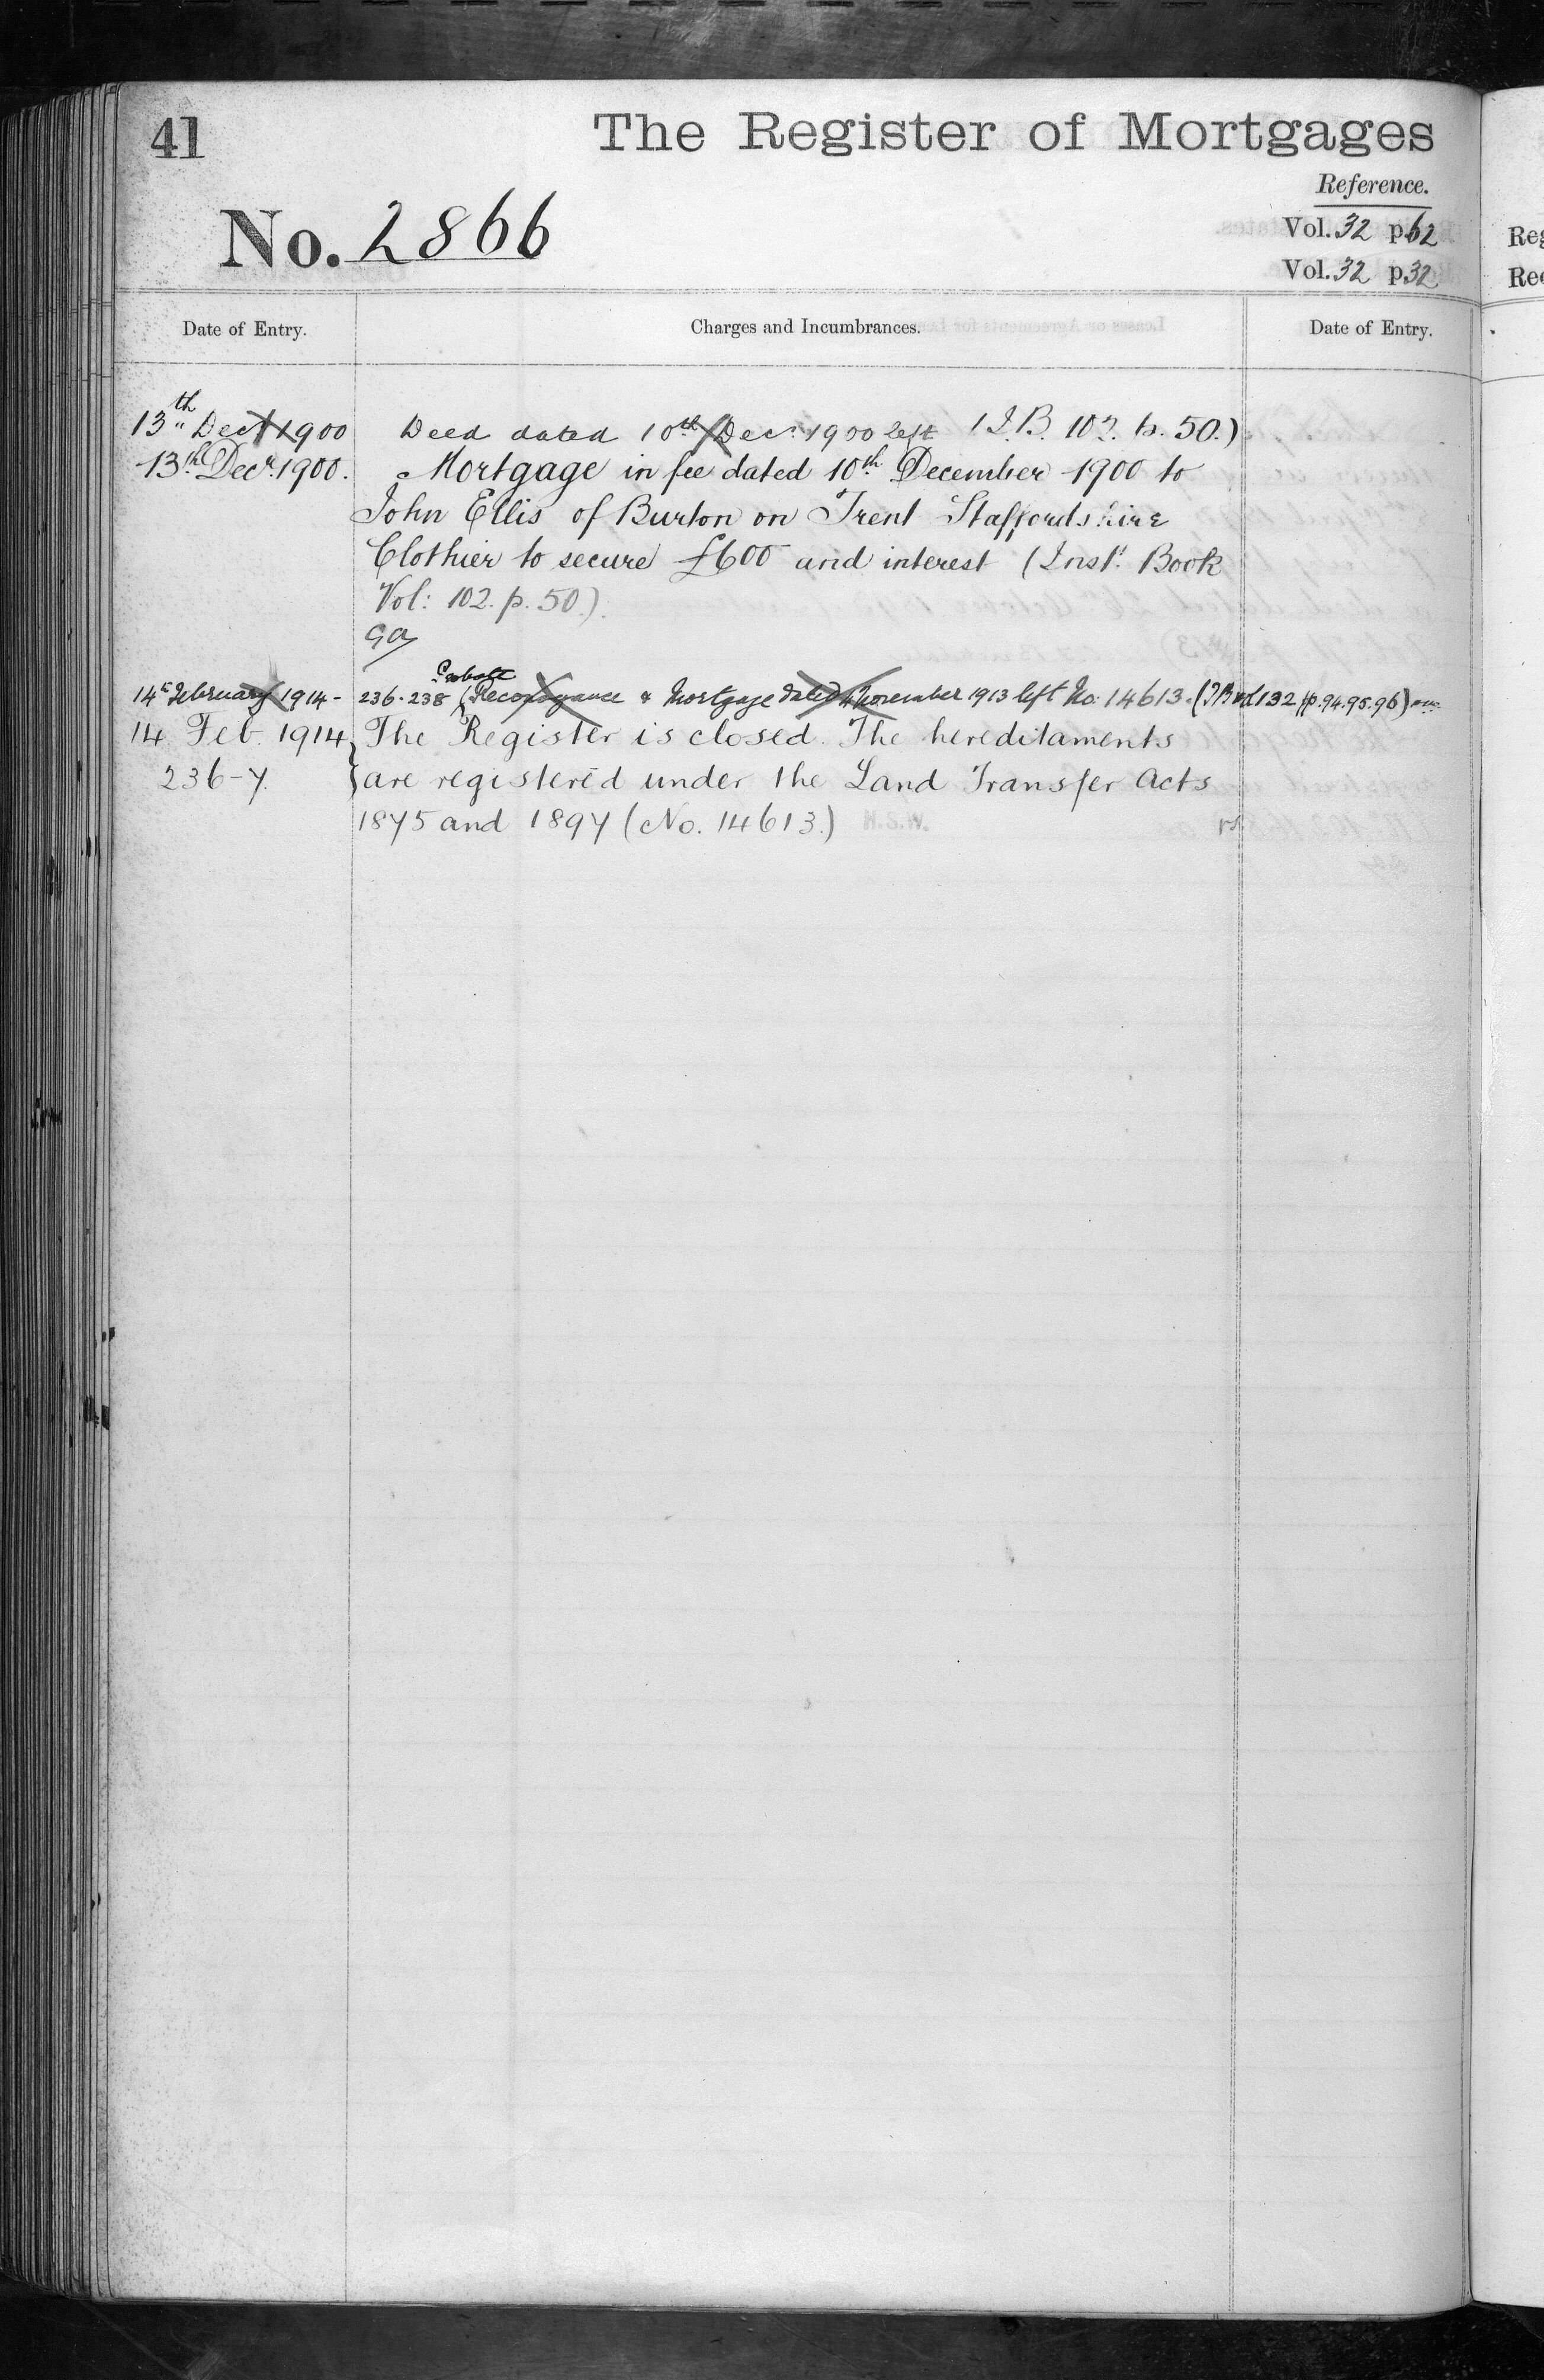 41
The Register of Mortgages
Reference.
No. 2866
Vol. 32 p. 62
Vol. 32 p. 32
Reg
Rec
Date of Entry.
Charges and Incumbrances.
Date of Entry.
13th Decr 1900 Deed dated 10th Decr 1900 left (I.B. 102. p. 50.)
13th Decr. 1900. Mortgage in fee dated 10th December 1900 to
John Ellis of Burton on Trent Staffordshire
Clothier to secure £600 and interest (Inst: Book
Vol: 102. p. 50.).
GA
Probate
14th February 1914 - 236.238 (Reconveyance & Mortgage dated 4 November 1913 left No. 14613. (I B vol 132 pp. 94.95.96)
14 Feb. 1914 The Register is closed. The hereditaments
236-7. are registered under the Land Transfer Acts
1875 and 1897 (No. 14613.) H.S.W.